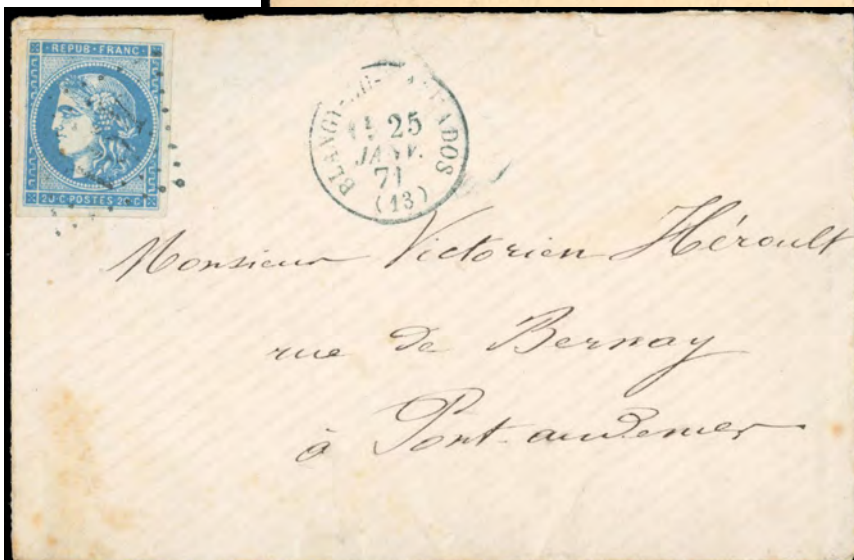 REPUB·FRANC·
20·C·POSTES·20·C
BLANGY
25
JANV.
71
(13)
Monsieur Victorien Héroult
rue de Bernay
à Pont-audemer